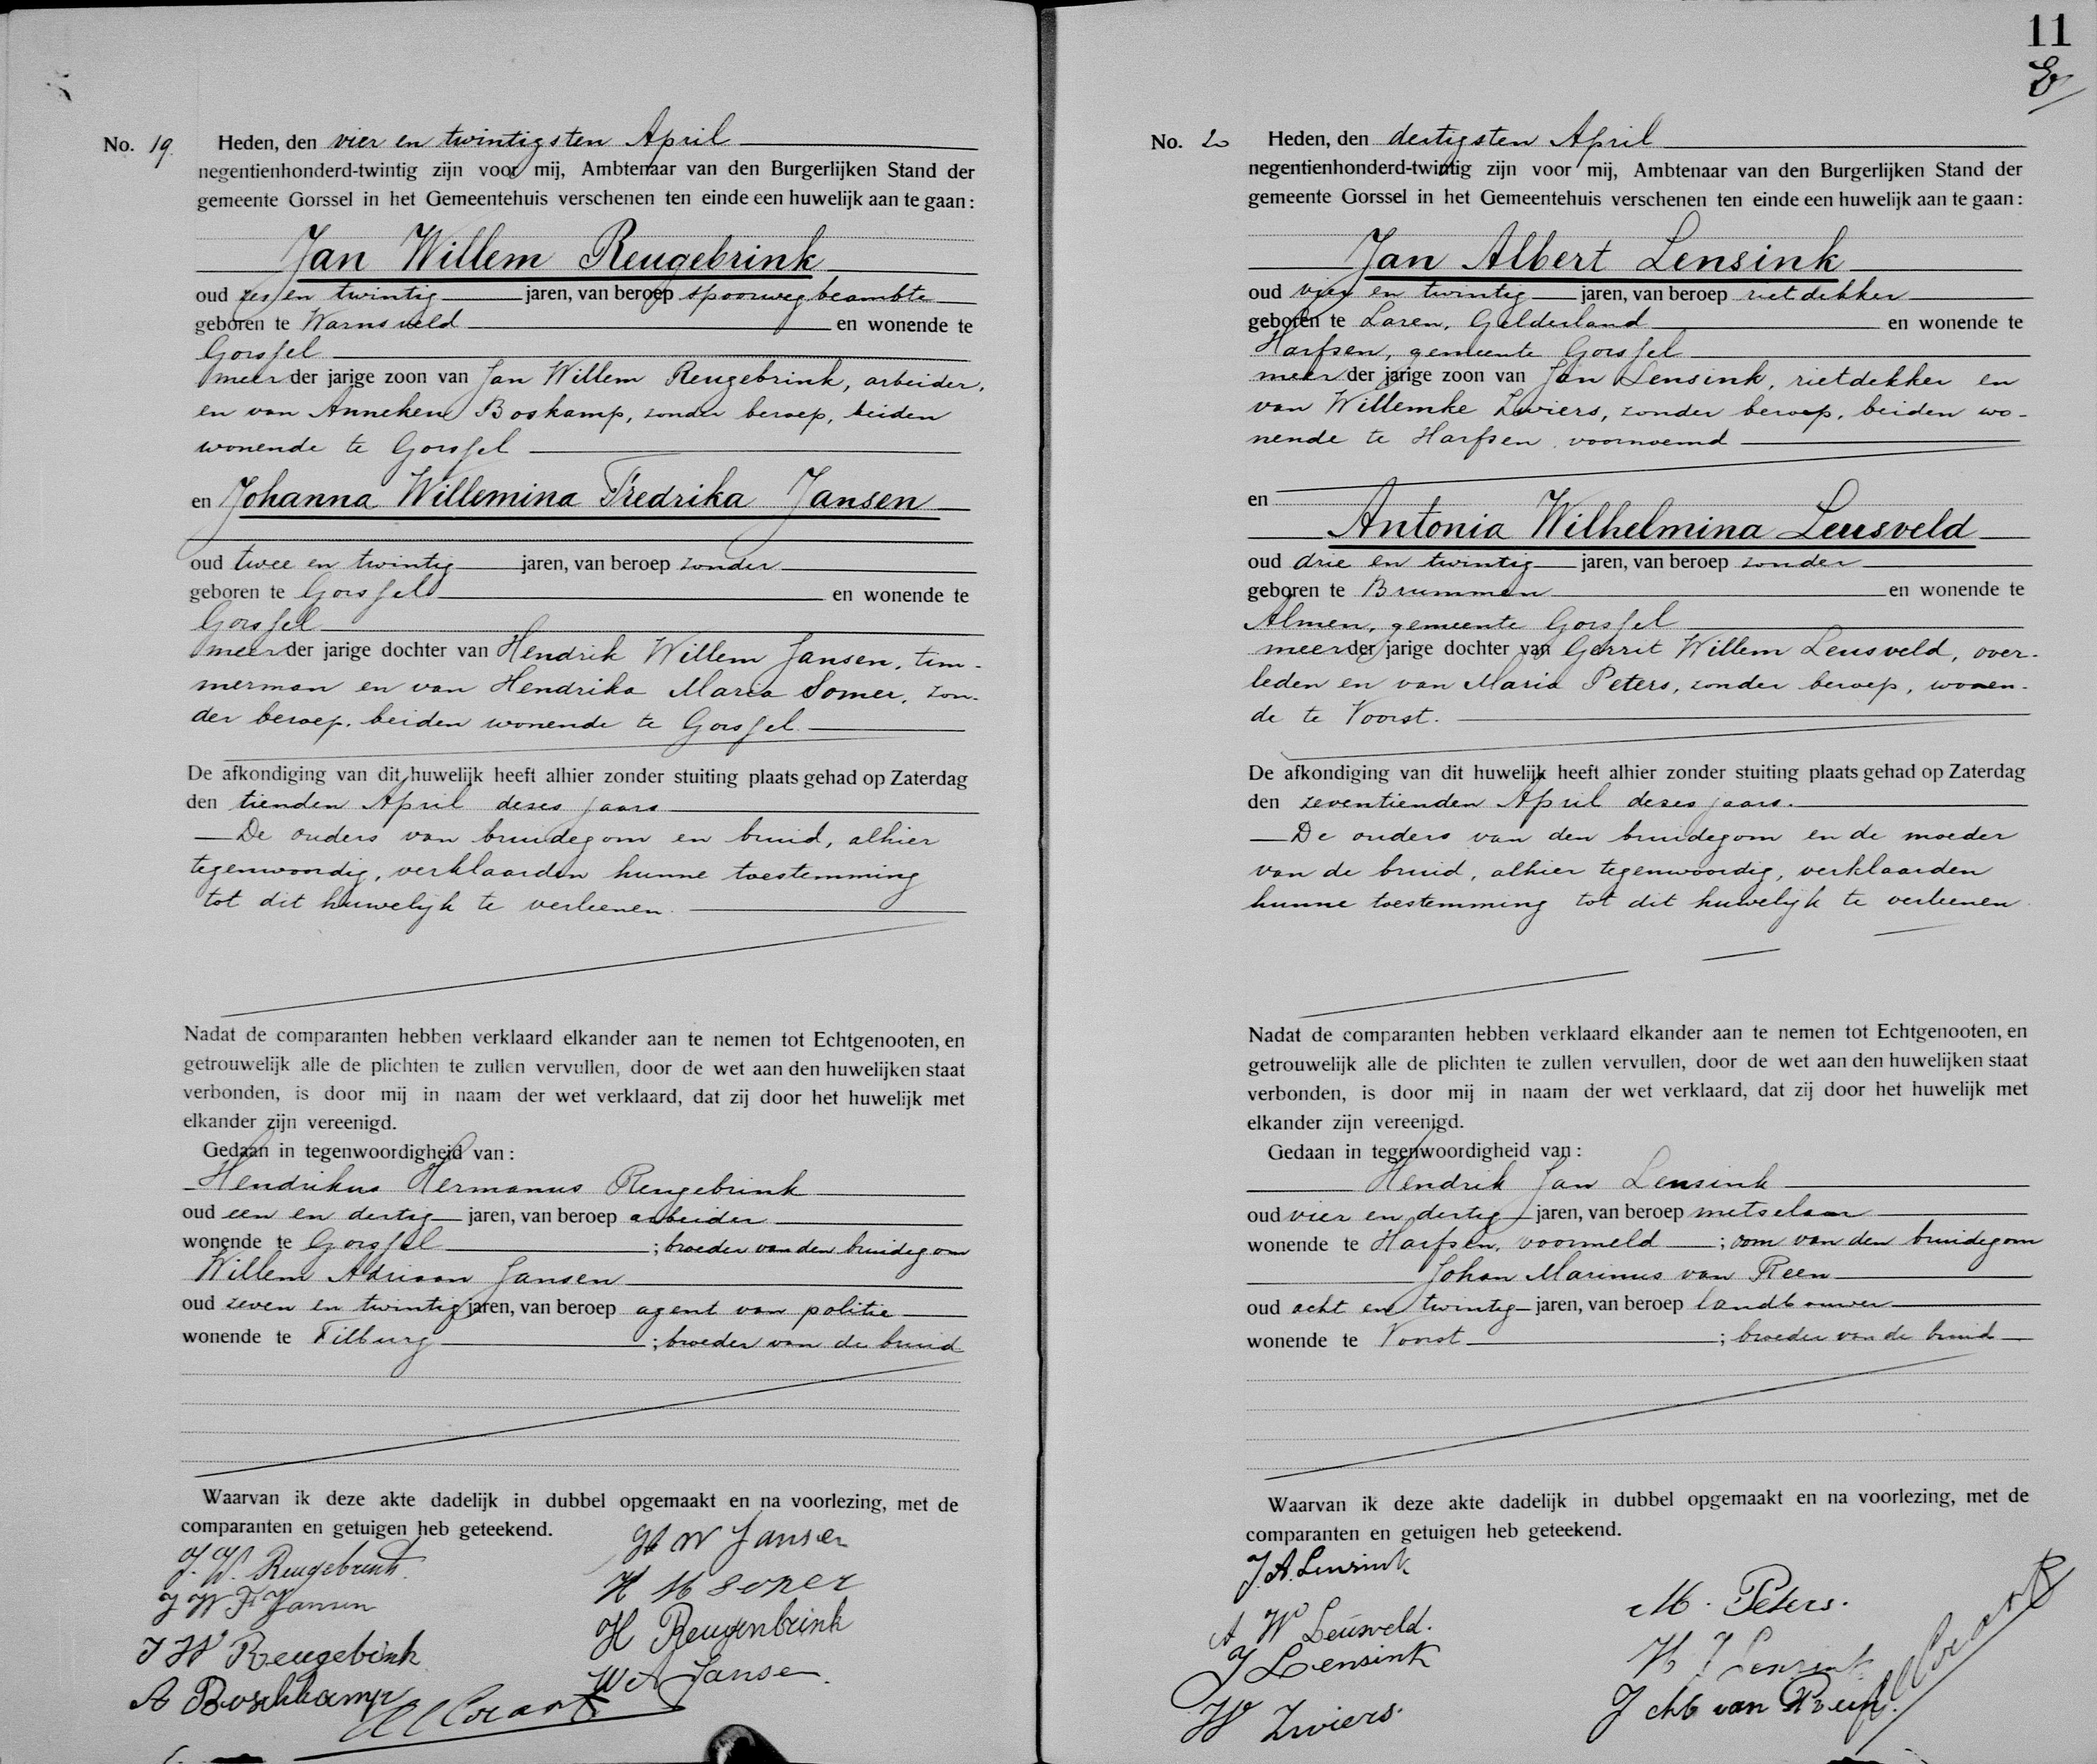 No. 19. Heden, den vier en twintigsten April
negentienhonderd-twintig zijn voor mij, Ambtenaar van den Burgerlijken Stand der
gemeente Gorssel in het Gemeentehuis verschenen ten einde een huwelijk aan te gaan:
Jan Willem Reugebrink
oud zes en twintig jaren, van beroep spoorwegbeambte
geboren te Warnsveld en wonende te
Gorssel
meerder jarige zoon van Jan Willem Reugebrink, arbeider,
en van Anneken Boskamp, zonder beroep, beiden
wonende te Gorssel
en Johanna Willemina Fredrika Jansen
oud twee en twintig jaren, van beroep zonder
geboren te Gorssel en wonende te
Gorssel
meerder jarige dochter van Hendrik Willem Jansen, tim-
merman en van Hendrika Maria Somer, zon-
der beroep, beiden wonende te Gorssel
De afkondiging van dit huwelijk heeft alhier zonder stuiting plaats gehad op Zaterdag
den tienden April dezes jaars
De ouders van bruidegom en bruid, alhier
tegenwoordig, verklaarden hunne toestemming
tot dit huwelijk te verleenen.
Nadat de comparanten hebben verklaard elkander aan te nemen tot Echtgenooten, en
getrouwelijk alle de plichten te zullen vervullen, door de wet aan den huwelijken staat
verbonden, is door mij in naam der wet verklaard, dat zij door het huwelijk met
elkander zijn vereenigd.
Gedaan in tegenwoordigheid van:
Hendrikus Hermanus Reugebrink
oud een en dertig jaren, van beroep arbeider
wonende te Gorssel ; broeder van den bruidegom
Willem Adriaan Jansen
oud zeven en twintig jaren, van beroep agent van politie
wonende te Tilburg ; broeder van de bruid
Waarvan ik deze akte dadelijk in dubbel opgemaakt en na voorlezing, met de
comparanten en getuigen heb geteekend.
J. W. Reugebrink.
J W F Jansen
J W Reugebrink
A Boschkamp
H W Jansen
H M Somer
H Reugenbrink
W A Jansen.
11
No. 20 Heden, den dertigsten April
negentienhonderd-twintig zijn voor mij, Ambtenaar van den Burgerlijken Stand der
gemeente Gorssel in het Gemeentehuis verschenen ten einde een huwelijk aan te gaan:
Jan Albert Lensink
oud vier en twintig jaren, van beroep rietdekker
geboren te Laren, Gelderland en wonende te
Harfsen, gemeente Gorssel
meerder jarige zoon van Jan Lensink, rietdekker en
van Willemke Zwiers, zonder beroep, beiden wo-
nende te Harfsen voornoemd
en
Antonia Wilhelmina Leusveld
oud drie en twintig jaren, van beroep zonder
geboren te Brummen en wonende te
Almen, gemeente Gorssel
meerder jarige dochter van Gerrit Willem Leusveld, over-
leden en van Maria Peters, zonder beroep, wonen-
de te Voorst.
De afkondiging van dit huwelijk heeft alhier zonder stuiting plaats gehad op Zaterdag
den zeventienden April dezes jaars.
De ouders van den bruidegom en de moeder
van de bruid, alhier tegenwoordig, verklaarden
hunne toestemming tot dit huwelijk te verleenen
Nadat de comparanten hebben verklaard elkander aan te nemen tot Echtgenooten, en
getrouwelijk alle de plichten te zullen vervullen, door de wet aan den huwelijken staat
verbonden, is door mij in naam der wet verklaard, dat zij door het huwelijk met
elkander zijn vereenigd.
Gedaan in tegenwoordigheid van:
Hendrik Jan Lensink
oud vier en dertig jaren, van beroep metselaar
wonende te Harfsen, voormeld ; oom van den bruidegom
Johan Marinus van Reen
oud acht en twintig jaren, van beroep landbouwer
wonende te Voorst ; broeder van de bruid
Waarvan ik deze akte dadelijk in dubbel opgemaakt en na voorlezing, met de
comparanten en getuigen heb geteekend.
J. A. Lensink
A W Leusveld.
J Lensink
W Zwiers.
M. Peters.
H J Lensink
J M van